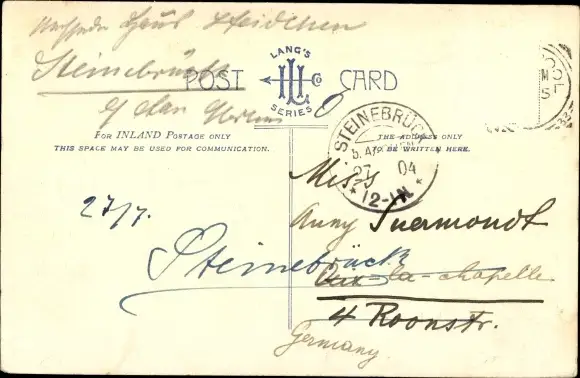 Steinebrück
POST CARD
LANG'S
Co
SERIES
FOR INLAND POSTAGE ONLY
THIS SPACE MAY BE USED FOR COMMUNICATION.
THE ADDRESS ONLY
TO BE WRITTEN HERE.
STEINEBRÜCK
27 04
12-1N
27/7.
Miss
Anny Suermondt
Steinebrück
Aix-la-chapelle
4 Roonstr.
Germany